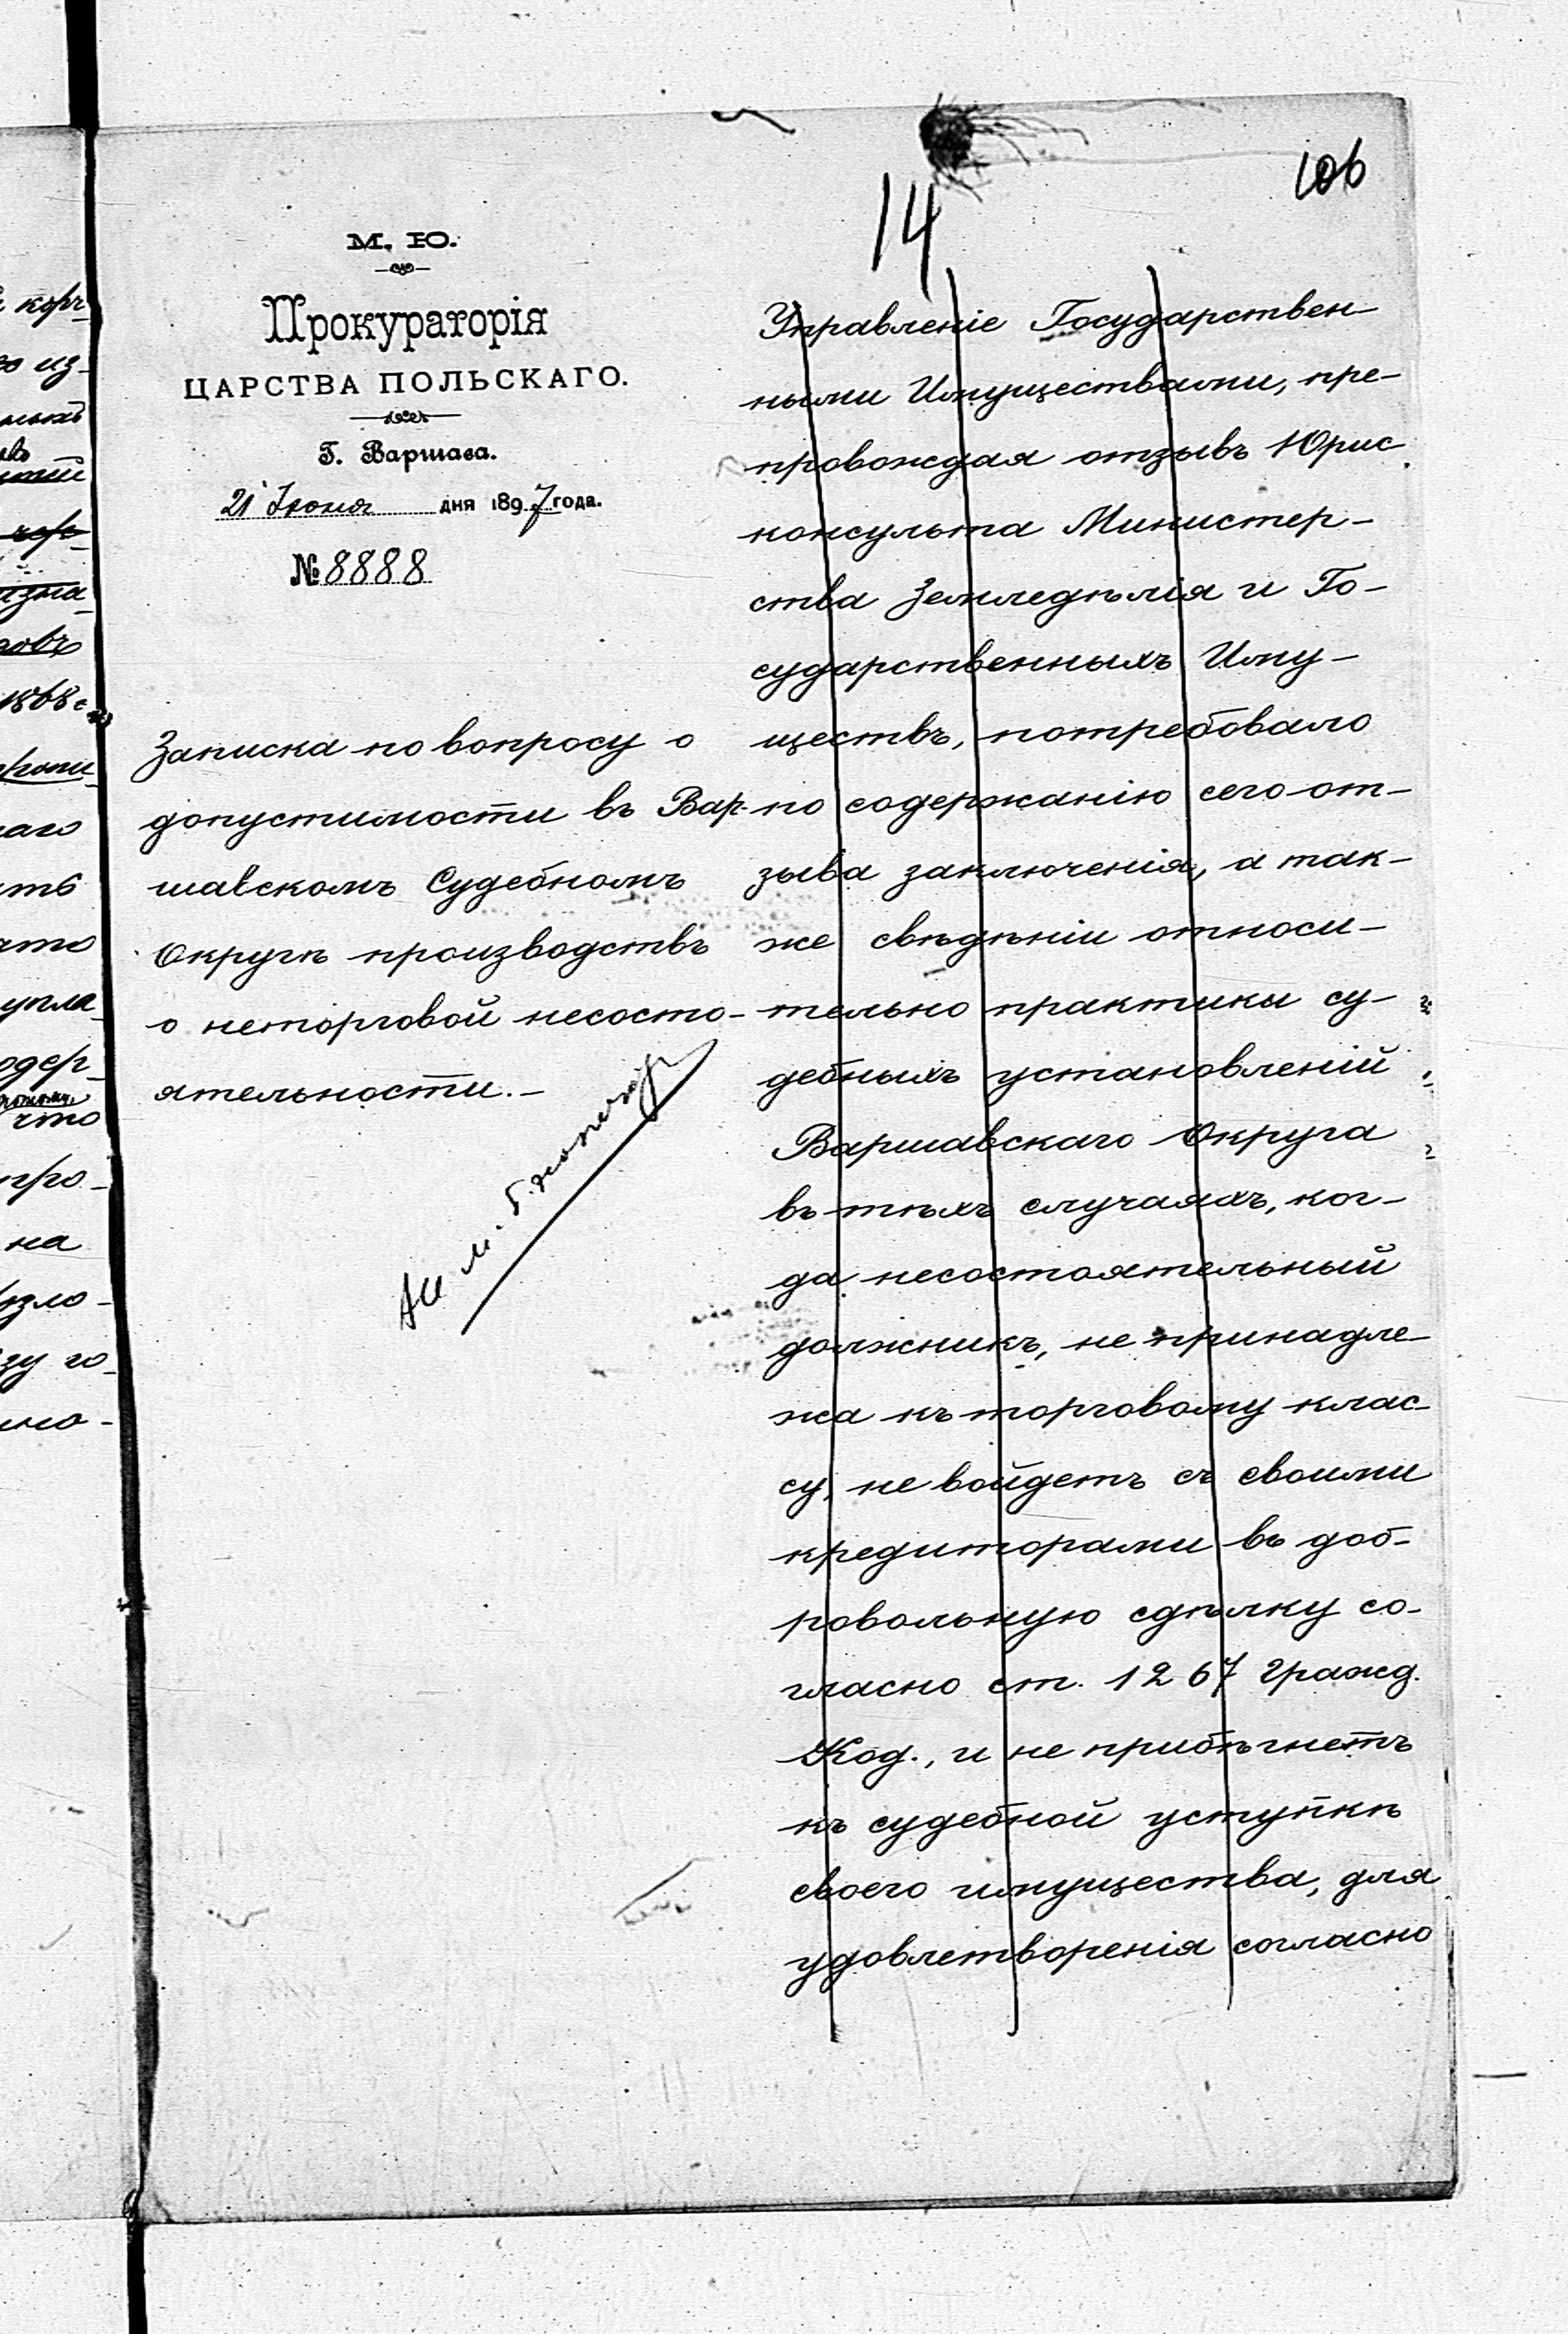 106
14
М. Ю.
Прокураторія
ЦАРСТВА ПОЛЬСКАГО.
Г. Варшава.
21 Іюня дня 1897 года.
№ 8888
Записка по вопросу о
допустимости въ Вар-
шавскомъ Судебномъ
Округѣ производствъ
о неторговой несосто-
ятельности.-
Управленіе Государствен-
ными Имуществами, пре-
провождая отзывъ Юрис
консульта Министер-
ства Земледѣлія и Го-
сударственныхъ Иму-
ществъ, потребовало
по содержанію сего от-
зыва заключенія, а так-
же свѣдѣніи относи-
тельно практики су-
дебныхъ установленій
Варшавскаго Округа
въ тѣхъ случаяхъ, ког-
да несостоятельный
должникъ, не принадле-
жа къ торговому клас-
су, не войдетъ съ своими
кредиторами въ доб-
ровольную сдѣлку со-
гласно ст. 1267 Гражд.
Код., и не прибѣгнетъ
къ судебной уступкѣ
своего имущества, для
удовлетворенія согласно